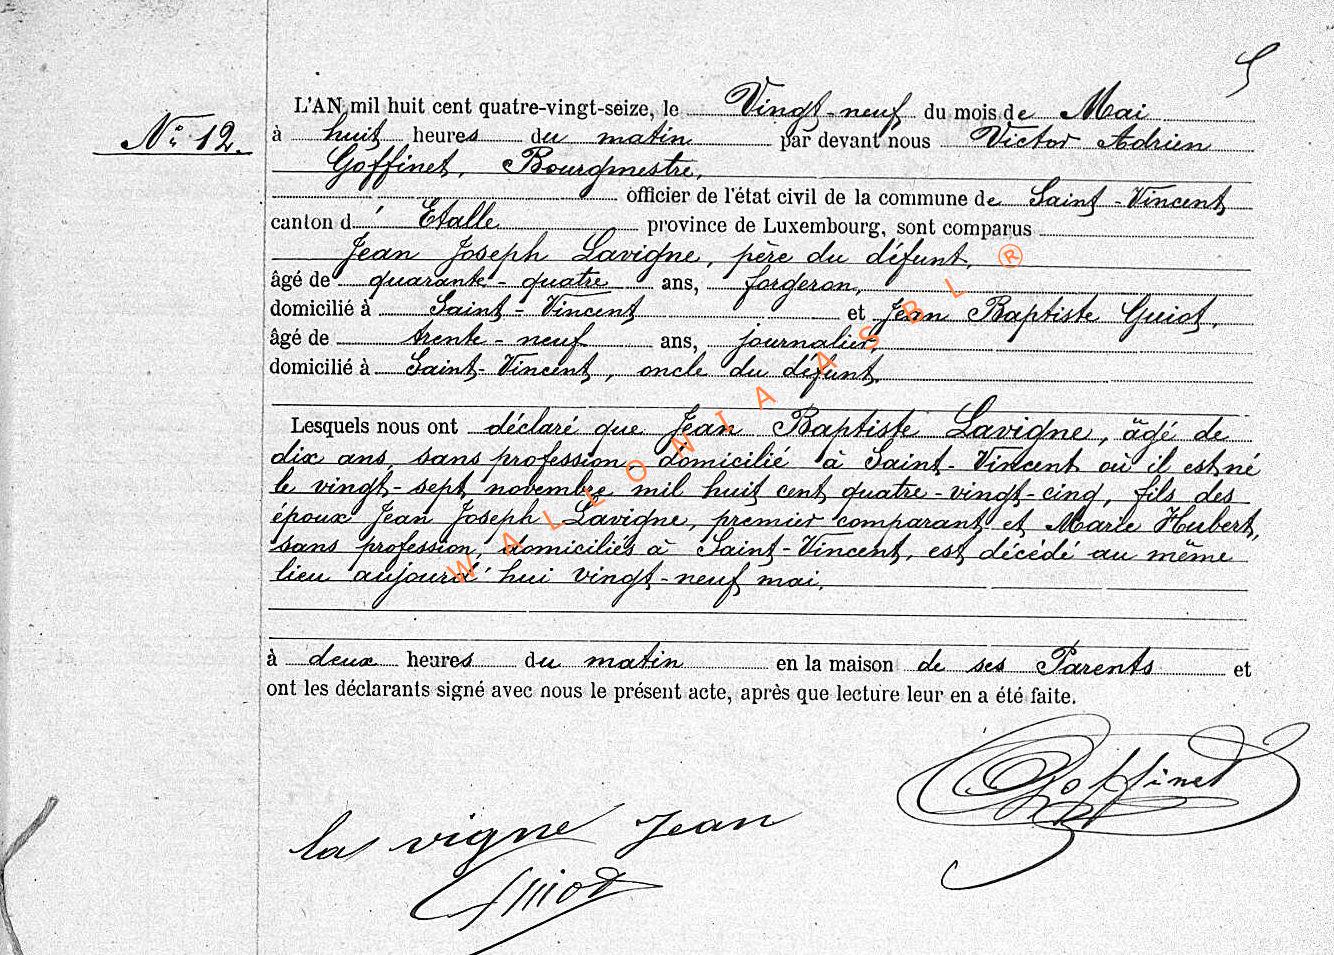 5
L'AN mil huit cent quatre-vingt-seize, le Vingt-neuf du mois de Mai
N° 12.
à huit heures du matin par devant nous Victor Adrien
Goffinet, Bourgmestre,
officier de l'état civil de la commune de Saint-Vincent
canton d'Etalle province de Luxembourg, sont comparus
Jean Joseph Lavigne, père du défunt,
âgé de quarante-quatre ans, forgeron,
domicilié à Saint-Vincent et Jean Baptiste Guiot,
âgé de trente-neuf ans, journalier,
domicilié à Saint-Vincent, oncle du défunt.
Lesquels nous ont déclaré que Jean Baptiste Lavigne, âgé de
dix ans, sans profession, domicilié à Saint-Vincent où il est né
le vingt-sept novembre mil huit cent quatre-vingt-cinq, fils des
époux Jean Joseph Lavigne, premier comparant et Marie Hubert,
sans profession, domiciliés à Saint-Vincent, est décédé au même
lieu aujourd'hui vingt-neuf mai,
à deux heures du matin en la maison de ses Parents et
ont les déclarants signé avec nous le présent acte, après que lecture leur en a été faite.
Goffinet
la vigne Jean
Guiot
WALLONIA ASBL ®